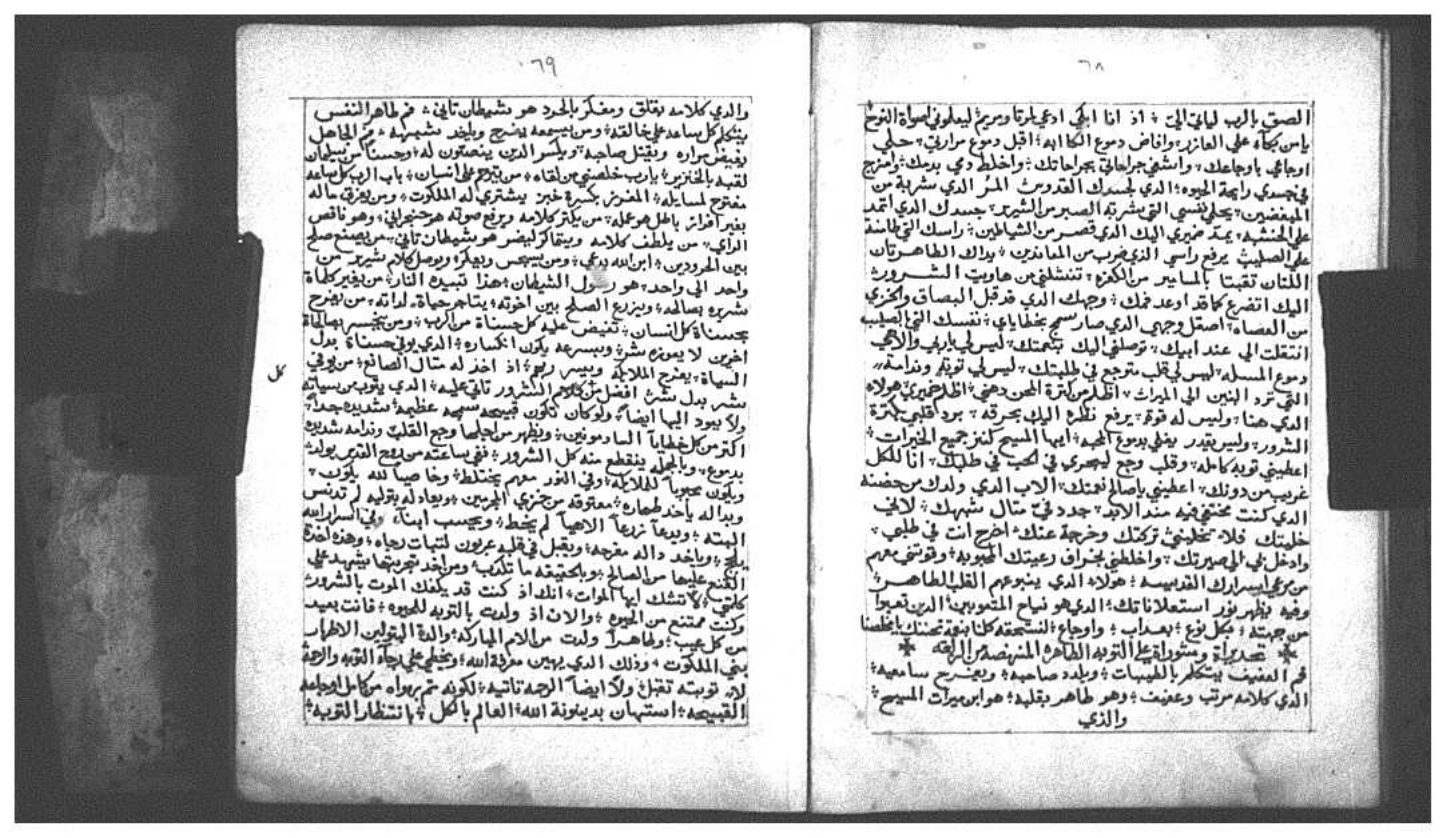 ٦٨
الصق بالرب لياتي الي ؛ اذ انا ابكي ادعي لمرتا ومريم ليعلموني اصواة النوح
يا من بكاه علي العازر ؛ وافاض دموع الكاابه ؛ اقبل دموع مرارتي ؛ حلي
اوجاعي باوجاعك ؛ واشفي جراحاتي بجراحاتك ؛ واخلط دمي بدمك ؛ وامزج
في جسدي رايحة الحيوه ؛ الذي لجسدك القدوس المر الدي شربة من
المبغضين ؛ يحلي نفسي التي شربة الصبر من الشرير ؛ جسدك الدي اتمد
علي الخشبه ؛ يمد ضميري اليك الدي قصر من الشياطين ؛ راسك التي طامنة
علي الصليب يرفع راسي الذي ضرب من المعاندين ؛ يداك الطاهرتان
اللتان تقبتا بالمسامير من الكفره ؛ تنشلني من هاويت الشرور ؛
اليك اتضرع كما قد اوعد فمك ؛ وجهك الدي قد قبل البصاق والخزي
من العصاه ؛ اصقل وجهي الدي صار سمج بخطاياي ؛ نفسك التي الصليب
انتقلت الي عند ابيك ؛ توصلني اليك بنعمتك ؛ ليس لي ياربي والاهي
دموع المسله ؛ ليس لي قلب متوجع في طلبتك ؛ ليس لي توبه وندامه
التي ترد البنين الي الميراث ؛ اظلم من كترة المحن دهني ؛ اظلم ضميري هولاه
الدي هنا ؛ وليس له قوة ؛ يرفع نظره اليك بحرقه ؛ برد قلبي بكترة
الشرور ؛ وليس يقدر يغلي بدموع المحبه ؛ ايها المسيح كنز جميع الخيرات ؛
اعطيني توبه كامله ؛ وقلب وجع ليجري في الحب في طلبك ؛ انا للكل
غريب من دونك ؛ اعطيني يا صالح نعمتك ؛ الاب الدي ولدك من حضنه
الدي كنت مختفي فيه مند الابد ؛ جدد فيّ متال شبهك ؛ لانني
خليتك فلا تخليني تركتك وخرجة عنك ؛ اخرج انت في طلبي ؛
وادخل بي الي صيرتك ؛ واخلطني بخراف رعيتك المحبوبه ؛ وقوتني معهم
من مرعي اسرارك القديسه ؛ هولاه الدي ينبوعهم القلب الطاهر ؛
وفيه يظهر نور استعلاناتك ؛ الدي هو نياح المتعوبين ؛ الدين تعبوا
من جهته ؛ بكل نوع ؛ بعداب ؛ واوجاع ؛ لنستحقه كلنا بنعمة تحننك يا مخلصنا
تحديراة ومشوراة علي التوبه الطاهره المنهضه من الراغه
فم العفيف يتكلم بالطيبات ؛ ويلدد صاحبه ؛ ويفرح سامعيه ؛
الدي كلامه مرتب وعفيف ؛ وهو طاهر بقلبه ؛ هو ابن ميرات المسيح ؛
والذي
٦٩
والدي كلامه بقلق ومفكر بالحرد هو شيطان تاني ؛ فم طاهر النفس
يتكلم كل ساعه علي خالقه ؛ ومن يسمعه يفرح وياخد شبهه ؛ فم الجاهل
يفيض مراره ويقتل صاحبه ؛ ويكسر الدين ينصتون له ؛ وحسنا من يسلمان
لقبه بالخنزير ؛ يارب خلصني من لقاه ؛ من يترحم علي انسان ؛ باب الرب كل ساعه
مفتوح لمسايله ؛ المفرز بكسرة خبز يشتري له الملكوت ؛ ومن يفرق ماله
بغير افراز باطل هو عمله ؛ من يكتر كلامه ويرفع صوته هو حنجراني ؛ وهو ناقص
الراي ؛ من يلطف كلامه ويتفاكر لبغضو هو شيطان تاني ؛ من يصنع صلح
بين الحرودين ؛ ابن الله يدعي ؛ ومن يسجس ويعكر ؛ ويوصل كلام شرير من
واحد الي واحد ؛ هو رسول الشيطان ؛ هذا تبيده النار ؛ من يغير كلماة
شريره بصالحه ؛ ويزرع الصلح بين اخوته ؛ يتاجر حياة لداته ؛ من يفرح
بحسناة كل انسان ؛ تفيض عليه كل حسناة من الرب ؛ ومن يتجسر بصالحاة
اخرين لا يعوزه شر ؛ وبسرعه يكون انكساره ؛ الدي يوفي حسناة بدل
السياة ؛ يفرح الملايكه ويسر ربهم ؛ اذ اخذ له متال الصانع ؛ من يوفي
كل
شر بدل شر ؛ افضل من كلام الشرور تاني عليه ؛ الدي يتوب من سياته
ولا يعود اليها ايضاً ؛ ولو كان تكون قبيحه سمجه عظيمه ؛ شديده جداً
اكتر من كل خطايا السادومونين ؛ ويظهر من اجلها وجع القلب وندامه شديده
بدموع ؛ وبالجمله ينقطع منه كل الشرور ؛ ففي ساعته من روح القدس يولد ؛
ويكون محبوباً للملايكه ؛ وفي النور معهم يختلط ؛ وخاصياً لله يكون ؛
وبداله ياخد طهاره ؛ معتوقه من خزي المجرمين ؛ ويعاد له بتوليه لم تدنس
البته ؛ ويدعا زرعاً الاهياً لم يخط ؛ ويحسب ابناً ؛ وفي اسرار الله
يلج ؛ وياخد داله مفرحه ؛ ويقبل في قلبه عربون لتبات رجاه ؛ وهذه اخدة
القنع عليها من الصالح ؛ وبالحقيقه ما تكدب ؛ ومن اخد تجربتها يشهد علي
كلمتي ؛ لا تشك ايها الموات ؛ انك اذ كنت قد يكفك الموت بالشرور ؛
وكنت ممتنع من الحيوه ؛ والان اذ ولدت بالتوبه للحيوه ؛ فانت بعيد
من كل عيب ؛ وطاهراً ولدت من الام المباركه ؛ والدة البتولين الاطهار
بني الملكوت ؛ وذلك الدي يهين معرفة الله ؛ ويخطي علي رجاء التوبه والرحمة
لانه توبته تقبل ولا ايضاً الرحمه تاتيه ؛ لكونه تم بهواه من كامل اوجاعه
القبيحه ؛ استهان بدينونة الله ؛ العالم بالكل ؛ بانتظار التوبه ؛